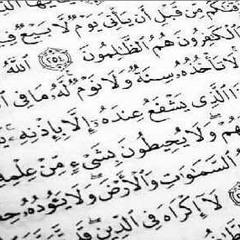 قنكم من قبل أن يأتي يوم لا بيع في
الكفرون هم الظلمون ٢٥٤ الله
لا تأخذه سنة ولا نوم له ما في
الذي يشفع عنده إلا بإذنه
ولا يحيطون بشيء من علمه
السموات والأرض ولا يئوده
لا إكراه في الدين